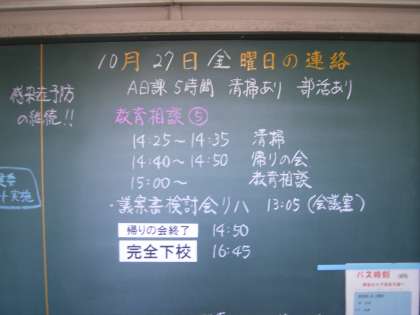 10月27日金曜日の連絡
A日課 5時間 清掃あり 部活あり
感染症予防
の継続!!
教育相談⑤
14:25～14:35 清掃
14:40～14:50 帰りの会
15:00～ 教育相談
・議案書検討会リハ 13:05(会議室)
帰りの会終了 14:50
完全下校 16:45
バス時刻